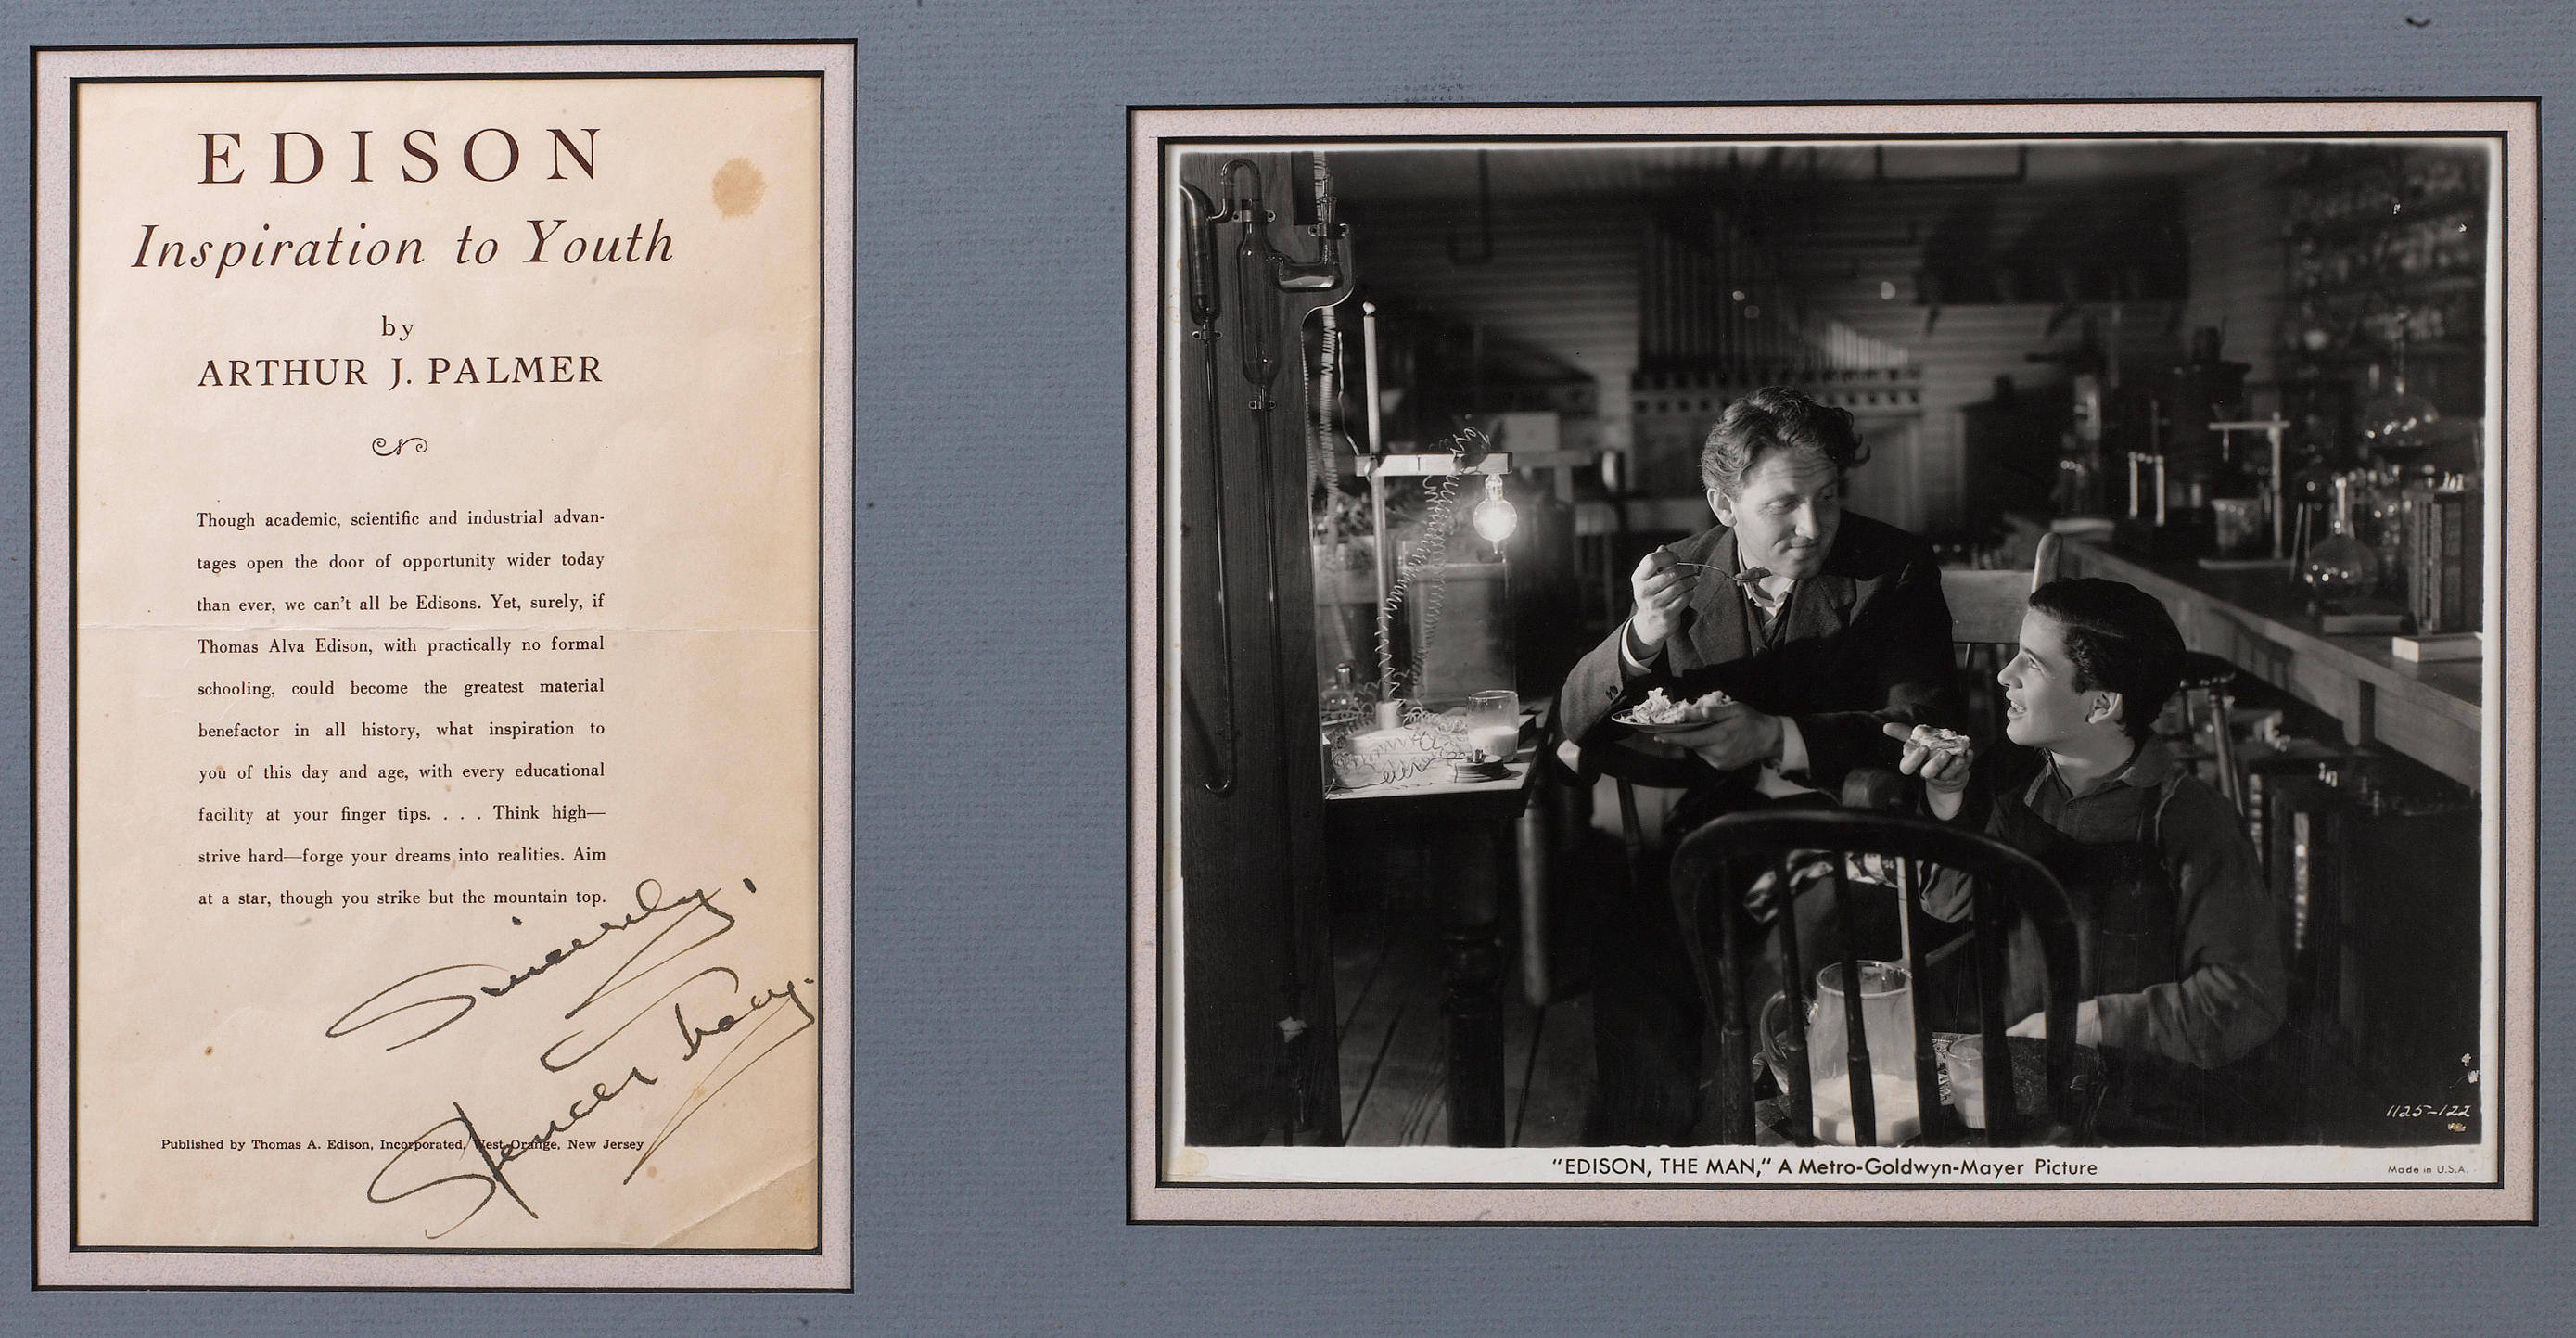 EDISON
Inspiration to Youth
by
ARTHUR J. PALMER
Though academic, scientific and industrial advan-
tages open the door of opportunity wider today
than ever, we can't all be Edisons. Yet, surely, if
Thomas Alva Edison, with practically no formal
schooling, could become the greatest material
benefactor in all history, what inspiration to
you of this day and age, with every educational
facility at your finger tips. . . . Think high—
strive hard—forge your dreams into realities. Aim
at a star, though you strike but the mountain top.
Sincerely.
Spencer Tracy.
Published by Thomas A. Edison, Incorporated, West Orange, New Jersey
1125-122
"EDISON, THE MAN," A Metro-Goldwyn-Mayer Picture
Made in U.S.A.